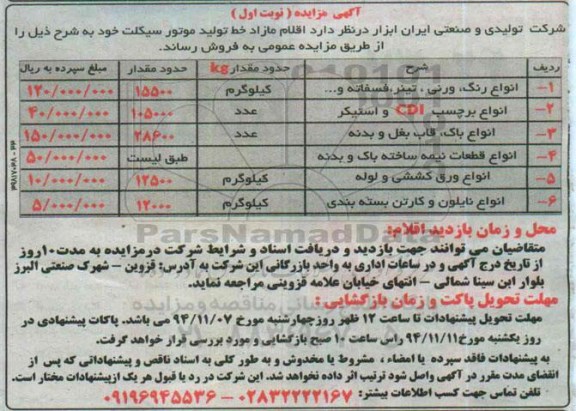 آگهی مزایده ( نوبت اول )
شرکت تولیدی و صنعتی ایران ابزار درنظر دارد اقلام مازاد خط تولید موتور سیکلت خود به شرح ذیل را
از طریق مزایده عمومی به فروش رساند.
ردیف شرح حدود مقدار kg حدود مقدار مبلغ سپرده به ریال
۱- انواع رنگ، ورنی ، تینر،فسفاته و... کیلوگرم ۱۵۵۰۰ ۱۲۰/۰۰۰/۰۰۰
۲- انواع برچسب CDI و استیکر عدد ۱۰۵۰۰۰ ۴۰/۰۰۰/۰۰۰
۳- انواع باک، قاب بغل و بدنه عدد ۲۸۶۰۰ ۱۵۰/۰۰۰/۰۰۰
۴- انواع قطعات نیمه ساخته باک و بدنه طبق لیست ۵۰/۰۰۰/۰۰۰
۵- انواع ورق کششی و لوله کیلوگرم ۱۲۵۰۰ ۱۰/۰۰۰/۰۰۰
۶- انواع نایلون و کارتن بسته بندی کیلوگرم ۱۲۰۰۰ ۵/۰۰۰/۰۰۰
ParsNamadData
محل و زمان بازدید اقلام:
متقاضیان می توانند جهت بازدید و دریافت اسناد و شرایط شرکت درمزایده به مدت۱۰روز
از تاریخ درج آگهی و در ساعات اداری به واحد بازرگانی این شرکت به آدرس: قزوین – شهرک صنعتی البرز
بلوار ابن سینا شمالی – انتهای خیابان علامه قزوینی مراجعه نماید.
مهلت تحویل پاکت و زمان بازگشایی :
مهلت تحویل پیشنهادات تا ساعت ۱۲ ظهر روزچهارشنبه مورخ ۹۴/۱۱/۰۷ می باشد. پاکات پیشنهادی در
روز یکشنبه مورخ۹۴/۱۱/۱۱ راس ساعت ۱۰ صبح بازگشایی و مورد بررسی قرار خواهد گرفت.
به پیشنهادات فاقد سپرده یا امضاء ، مشروط یا مخدوش و به طور کلی به اسناد ناقص و پیشنهاداتی که پس از
انقضای مدت مقرر در آگهی واصل شود ترتیب اثر داده نخواهد شد. این شرکت در رد یا قبول هر یک ازپیشنهادات مختار است.
تلفن تماس جهت کسب اطلاعات بیشتر: ۰۲۸۳۲۲۲۲۱۶۷ – ۰۹۱۹۶۹۴۵۵۳۶